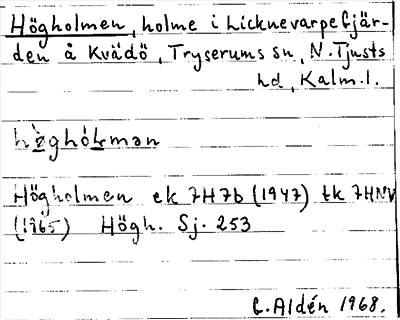 Högholmen, holme i Licknevarpefjär-
den å Kvädö, Tryserums sn, N. Tjusts
hd, Kalm. l.
hòghólmən
Högholmen ek 7H7b (1947) tk 7HNV
(1965) Högh. Sj. 253
C. Aldén 1968.